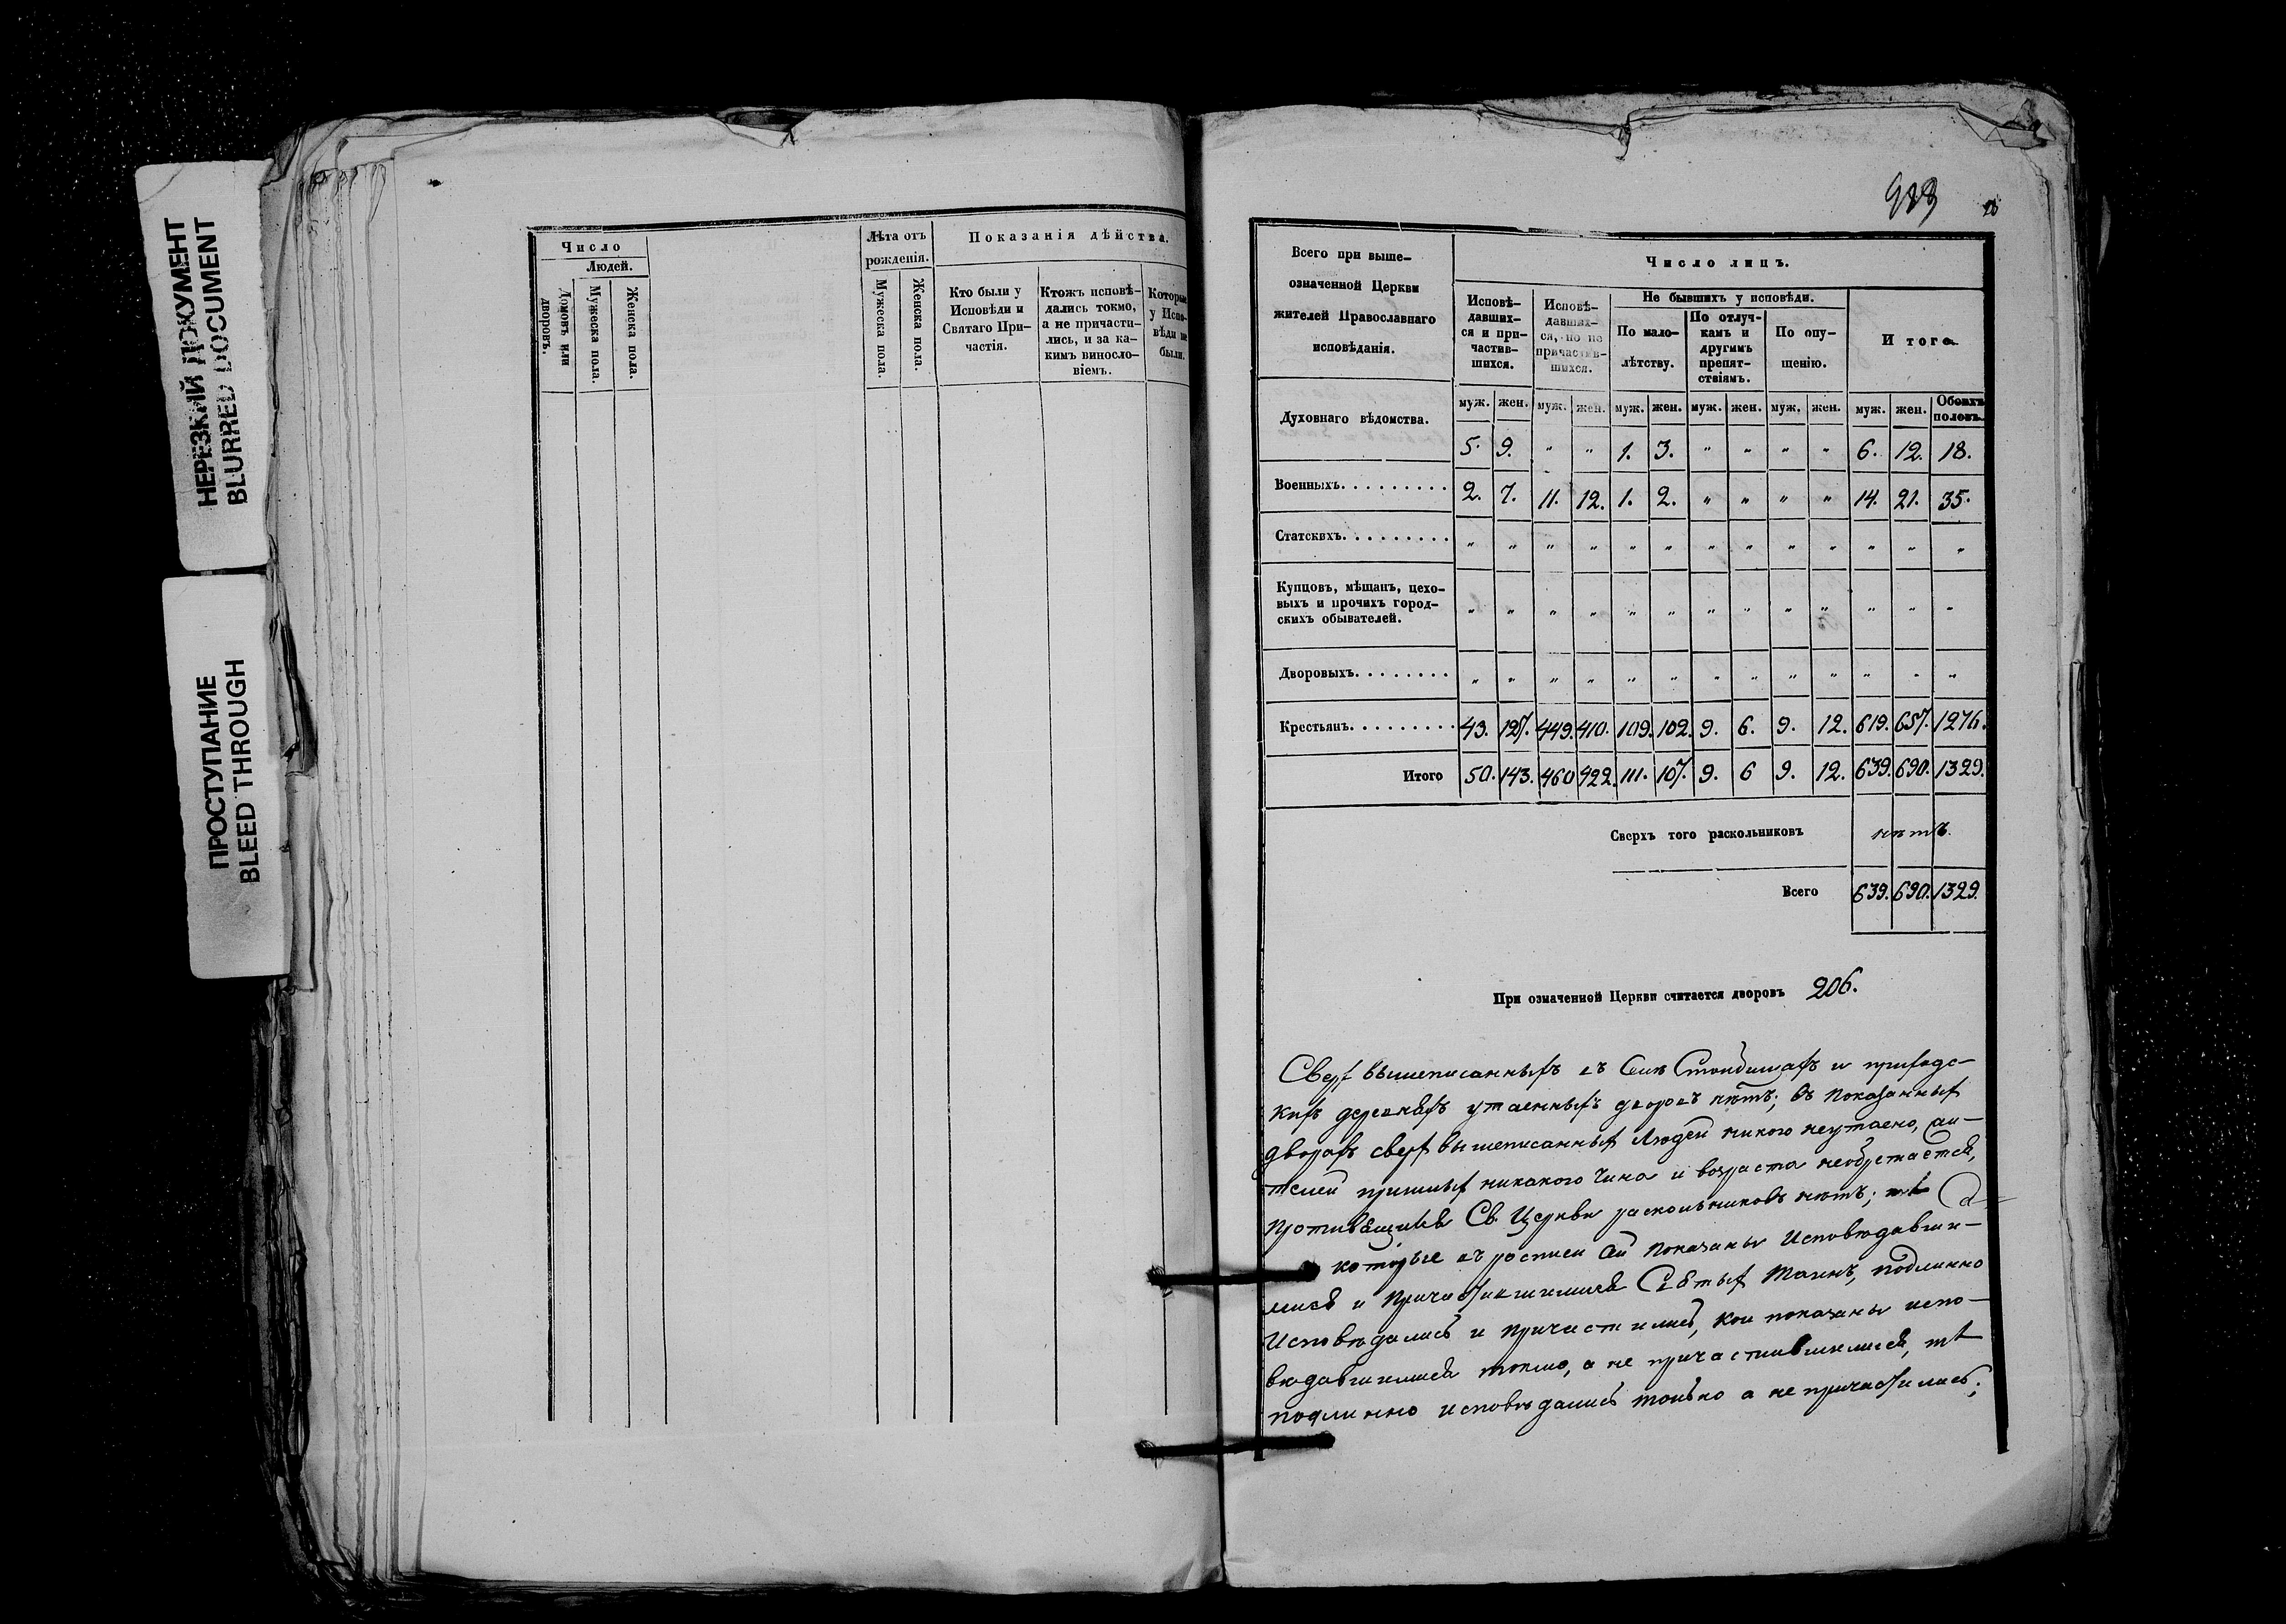 НЕРЕЗКИЙ ДОКУМЕНТ
BLURRED DOCUMENT
ПРОСТУПАНИЕ
BLEED THROUGH
Число
Людей.
Домовъ или дворовъ.
Мужеска пола.
Женска пола.
Лѣта отъ рожденія.
Мужеска пола.
Женска пола.
Показанія дѣйства.
Кто были у Исповѣди и Святаго Причастія.
Ктожъ исповѣ-
дались токмо,
а не причасти-
лись, и за ка-
кимъ виносло-
віемъ.
Которые
у Испо-
вѣди не
были.
Всего при выше-
означенной Церкви
жителей Православнаго
исповѣданія.
Число лицъ.
Исповѣ-
давших-
ся и при-
частив-
шихся.
Исповѣ-
давших-
ся, но не
причастив-
шихся.
Не бывшихъ у исповѣди.
По мало-
лѣтству.
По отлуч-
камъ и
другимъ
препят-
ствіямъ.
По опу-
щенію.
Итого
муж. жен. муж. жен. муж. жен. муж. жен. муж. жен. муж. жен. Обоихъ половъ.
Духовнаго вѣдомства. 5. 9. " " 1. 3. " " " " 6. 12. 18.
Военныхъ......... 2. 7. 11. 12. 1. 2. " " " " 14. 21. 35.
Статскихъ......... " " " " " " " " " " " " "
Купцовъ, мѣщанъ, цехо-
выхъ и прочихъ город-
скихъ обывателей. " " " " " " " " " " " " "
Дворовыхъ........ " " " " " " " " " " " " "
Крестьянъ......... 43. 127. 449. 410. 109. 102. 9. 6. 9. 12. 619. 657. 1276.
Итого 50. 143. 460 422. 111. 107. 9. 6 9. 12. 639. 690. 1329.
Сверхъ того раскольниковъ нѣтъ.
Всего 639. 690. 1329.
При означенной Церкви считается дворовъ 206.
Сверх вышеписанныхъ въ Селѣ и приходс-
кихъ деревняхъ утаенныхъ дворовъ нѣтъ; въ показанных
дворахъ сверх вышеписанных людей никого неутаено, жи-
телей пришлых никакого чина и возраста необрѣтается,
противящихся Св. Церкви раскольниковъ нѣтъ;
которые въ росписи сей показаны Исповѣдавши-
мися и Причастившимися Святых Таинъ, подлинно
Исповѣдались и причастились, кои показаны испо-
вѣдавшимися токмо, а не причастившимися, тѣ
подлинно исповѣдались только а не причастились;